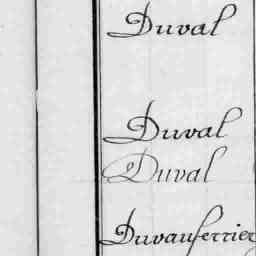 Duval
Duval
Duval
Duvauferrier